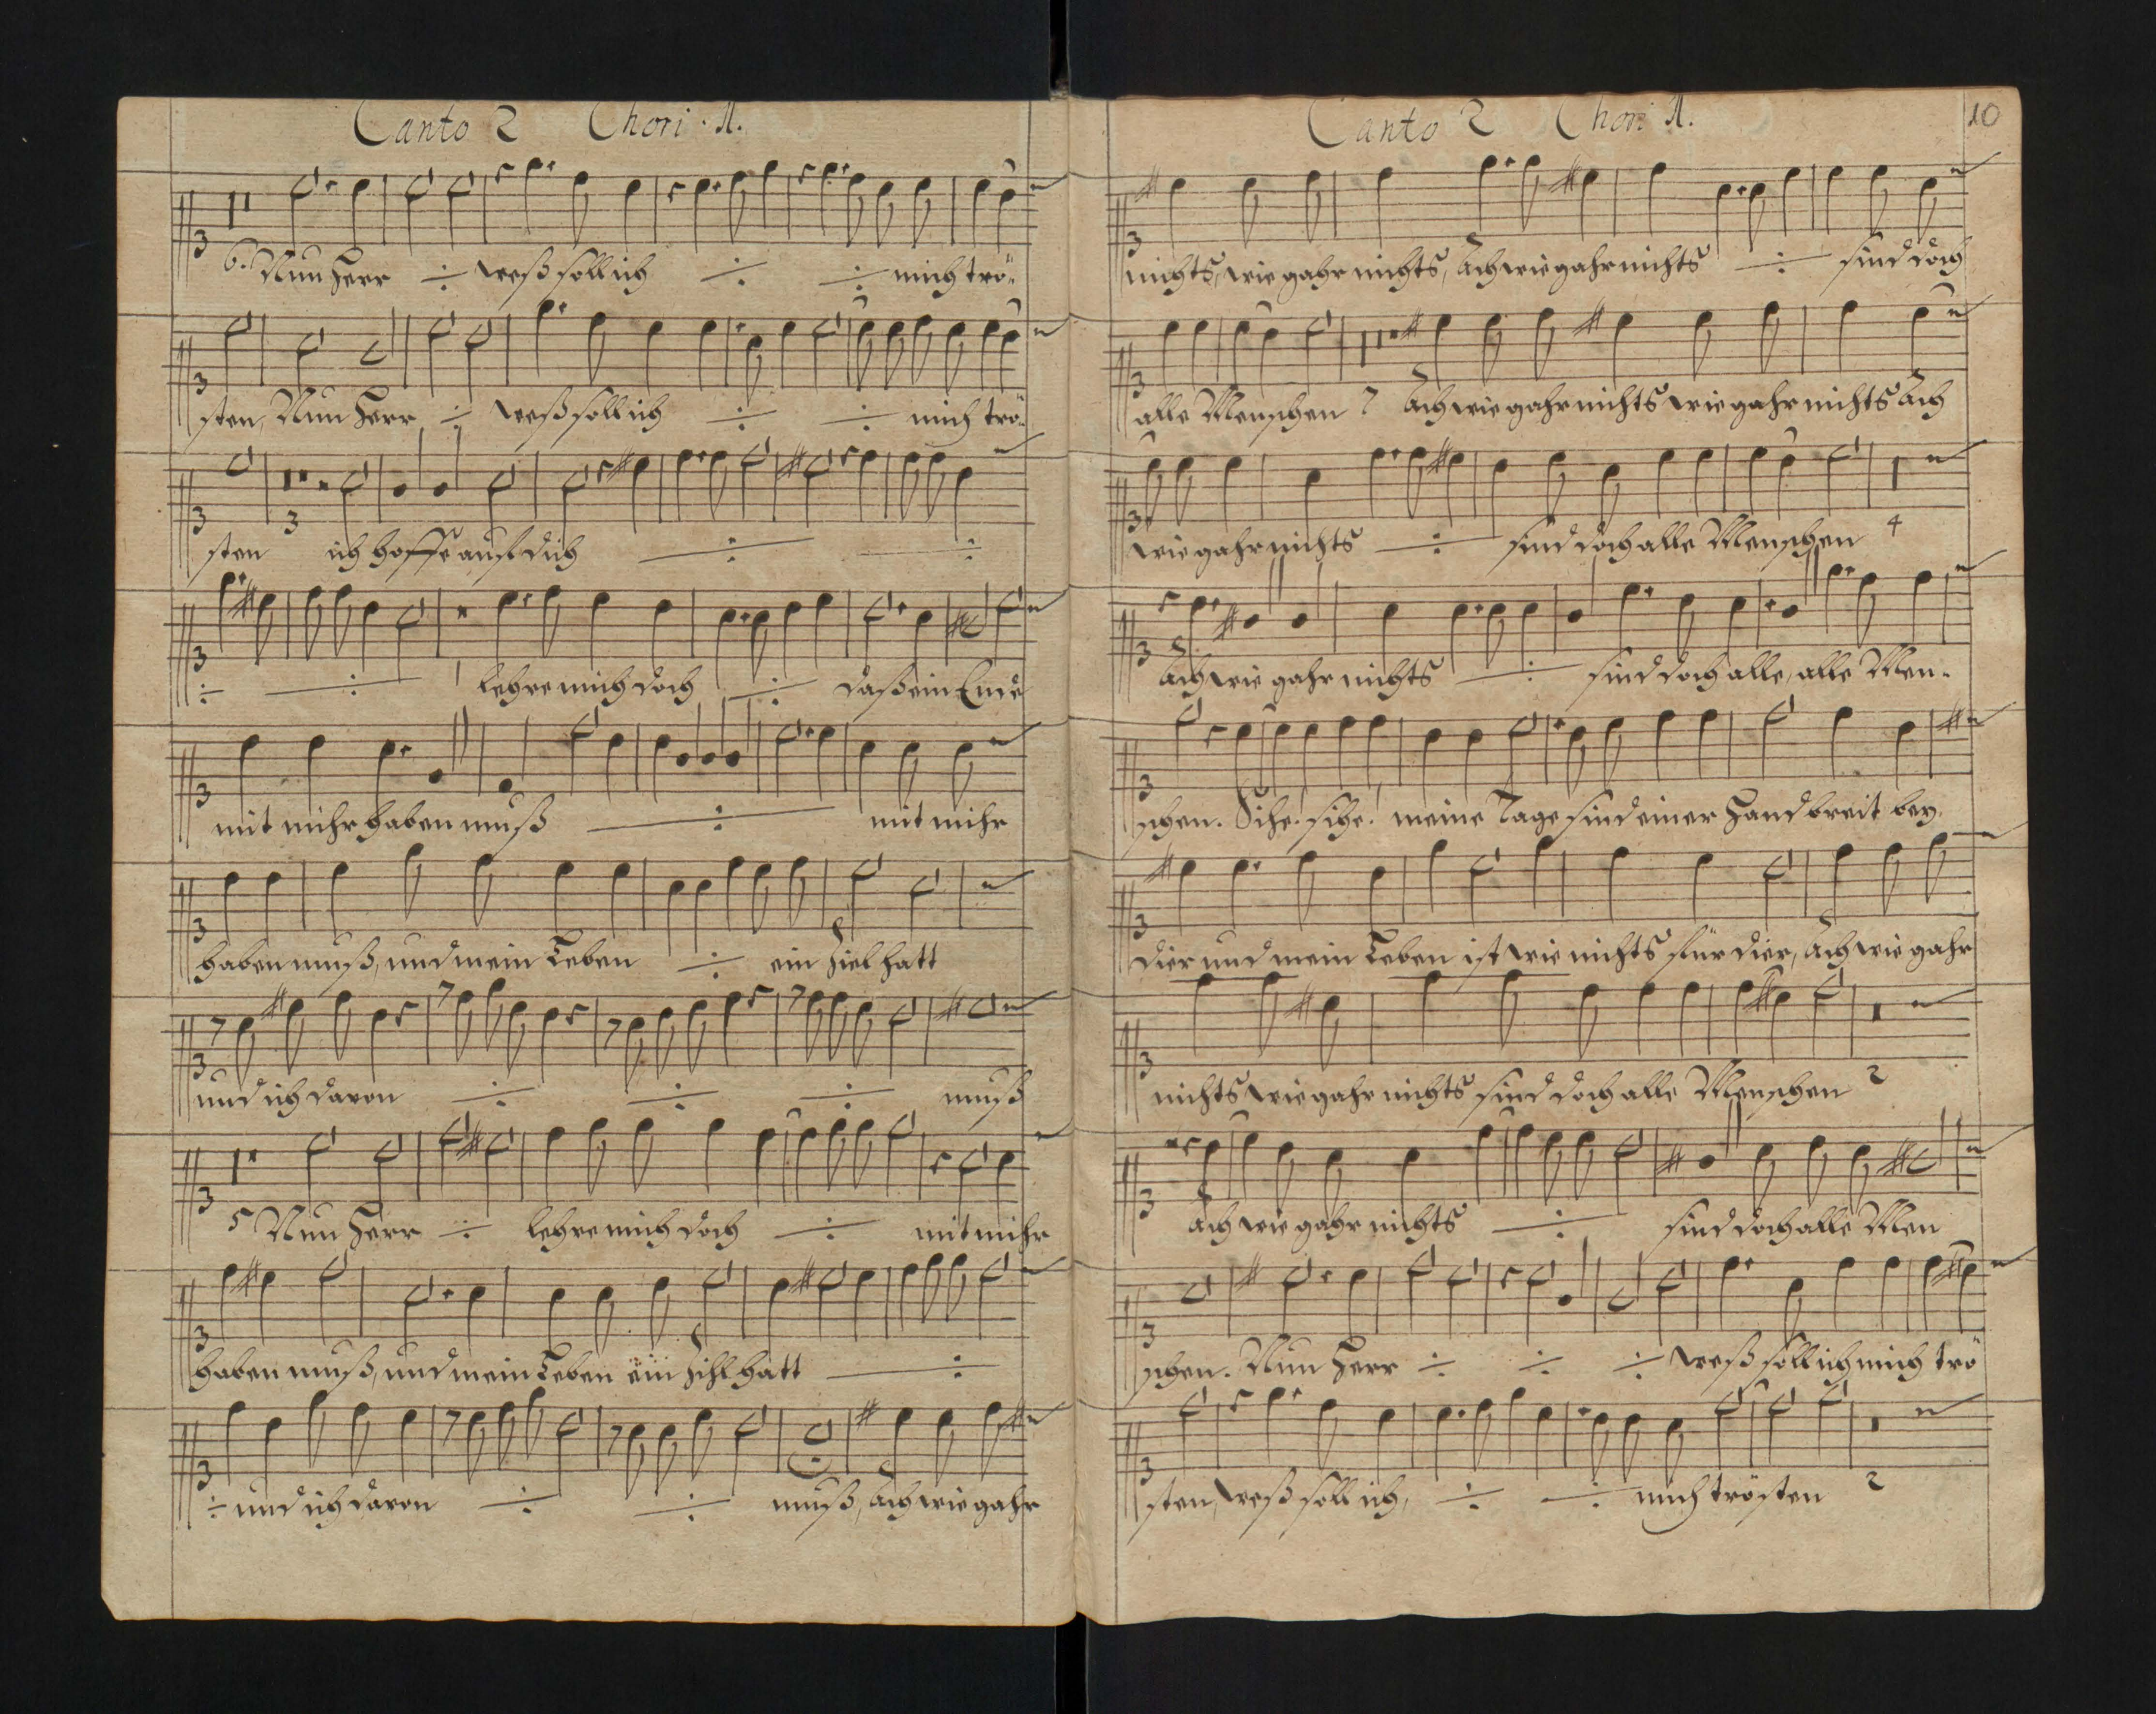 Canto 2 Chori. A.
6. Nun Herr ÷ weß soll ich ÷ ÷ mich trö-
sten, Nun Herr ÷ weß soll ich ÷ ÷ mich trö-
3
sten ich hoffe auf dich ÷ ÷
÷ ÷ lehre mich doch ÷ daß ein Ende
mit mihr haben muß ÷ mit mihr
haben muß, und mein Leben ÷ ein Ziel hatt
und ich davon ÷ ÷ ÷ muß
5 Nun Herr ÷ lehre mich doch ÷ mit mihr
haben muß, und mein Leben ein Zihl hatt ÷
÷ und ich davon ÷ ÷ muß, Ach wie gahr
Canto 2 Chori A.
10
nichts, wie gahr nichts, Ach wie gahr nichts ÷ sind doch
alle Menschen 7 Ach wie gahr nichts wie gahr nichts Ach
wie gahr nichts ÷ sind doch alle Menschen 4
Ach wie gahr nichts ÷ sind doch alle, alle Men-
schen. Sihe! sihe! meine Tage sind einer Hand breit bey
dier und mein Leben ist wie nichts für dier, Ach wie gahr
nichts wie gahr nichts sind doch alle Menschen 2
Ach wie gahr nichts ÷ sind doch alle Men
schen. Nun Herr ÷ ÷ ÷ weß soll ich mich trö
sten, weß soll ich, ÷ ÷ mich trösten 2